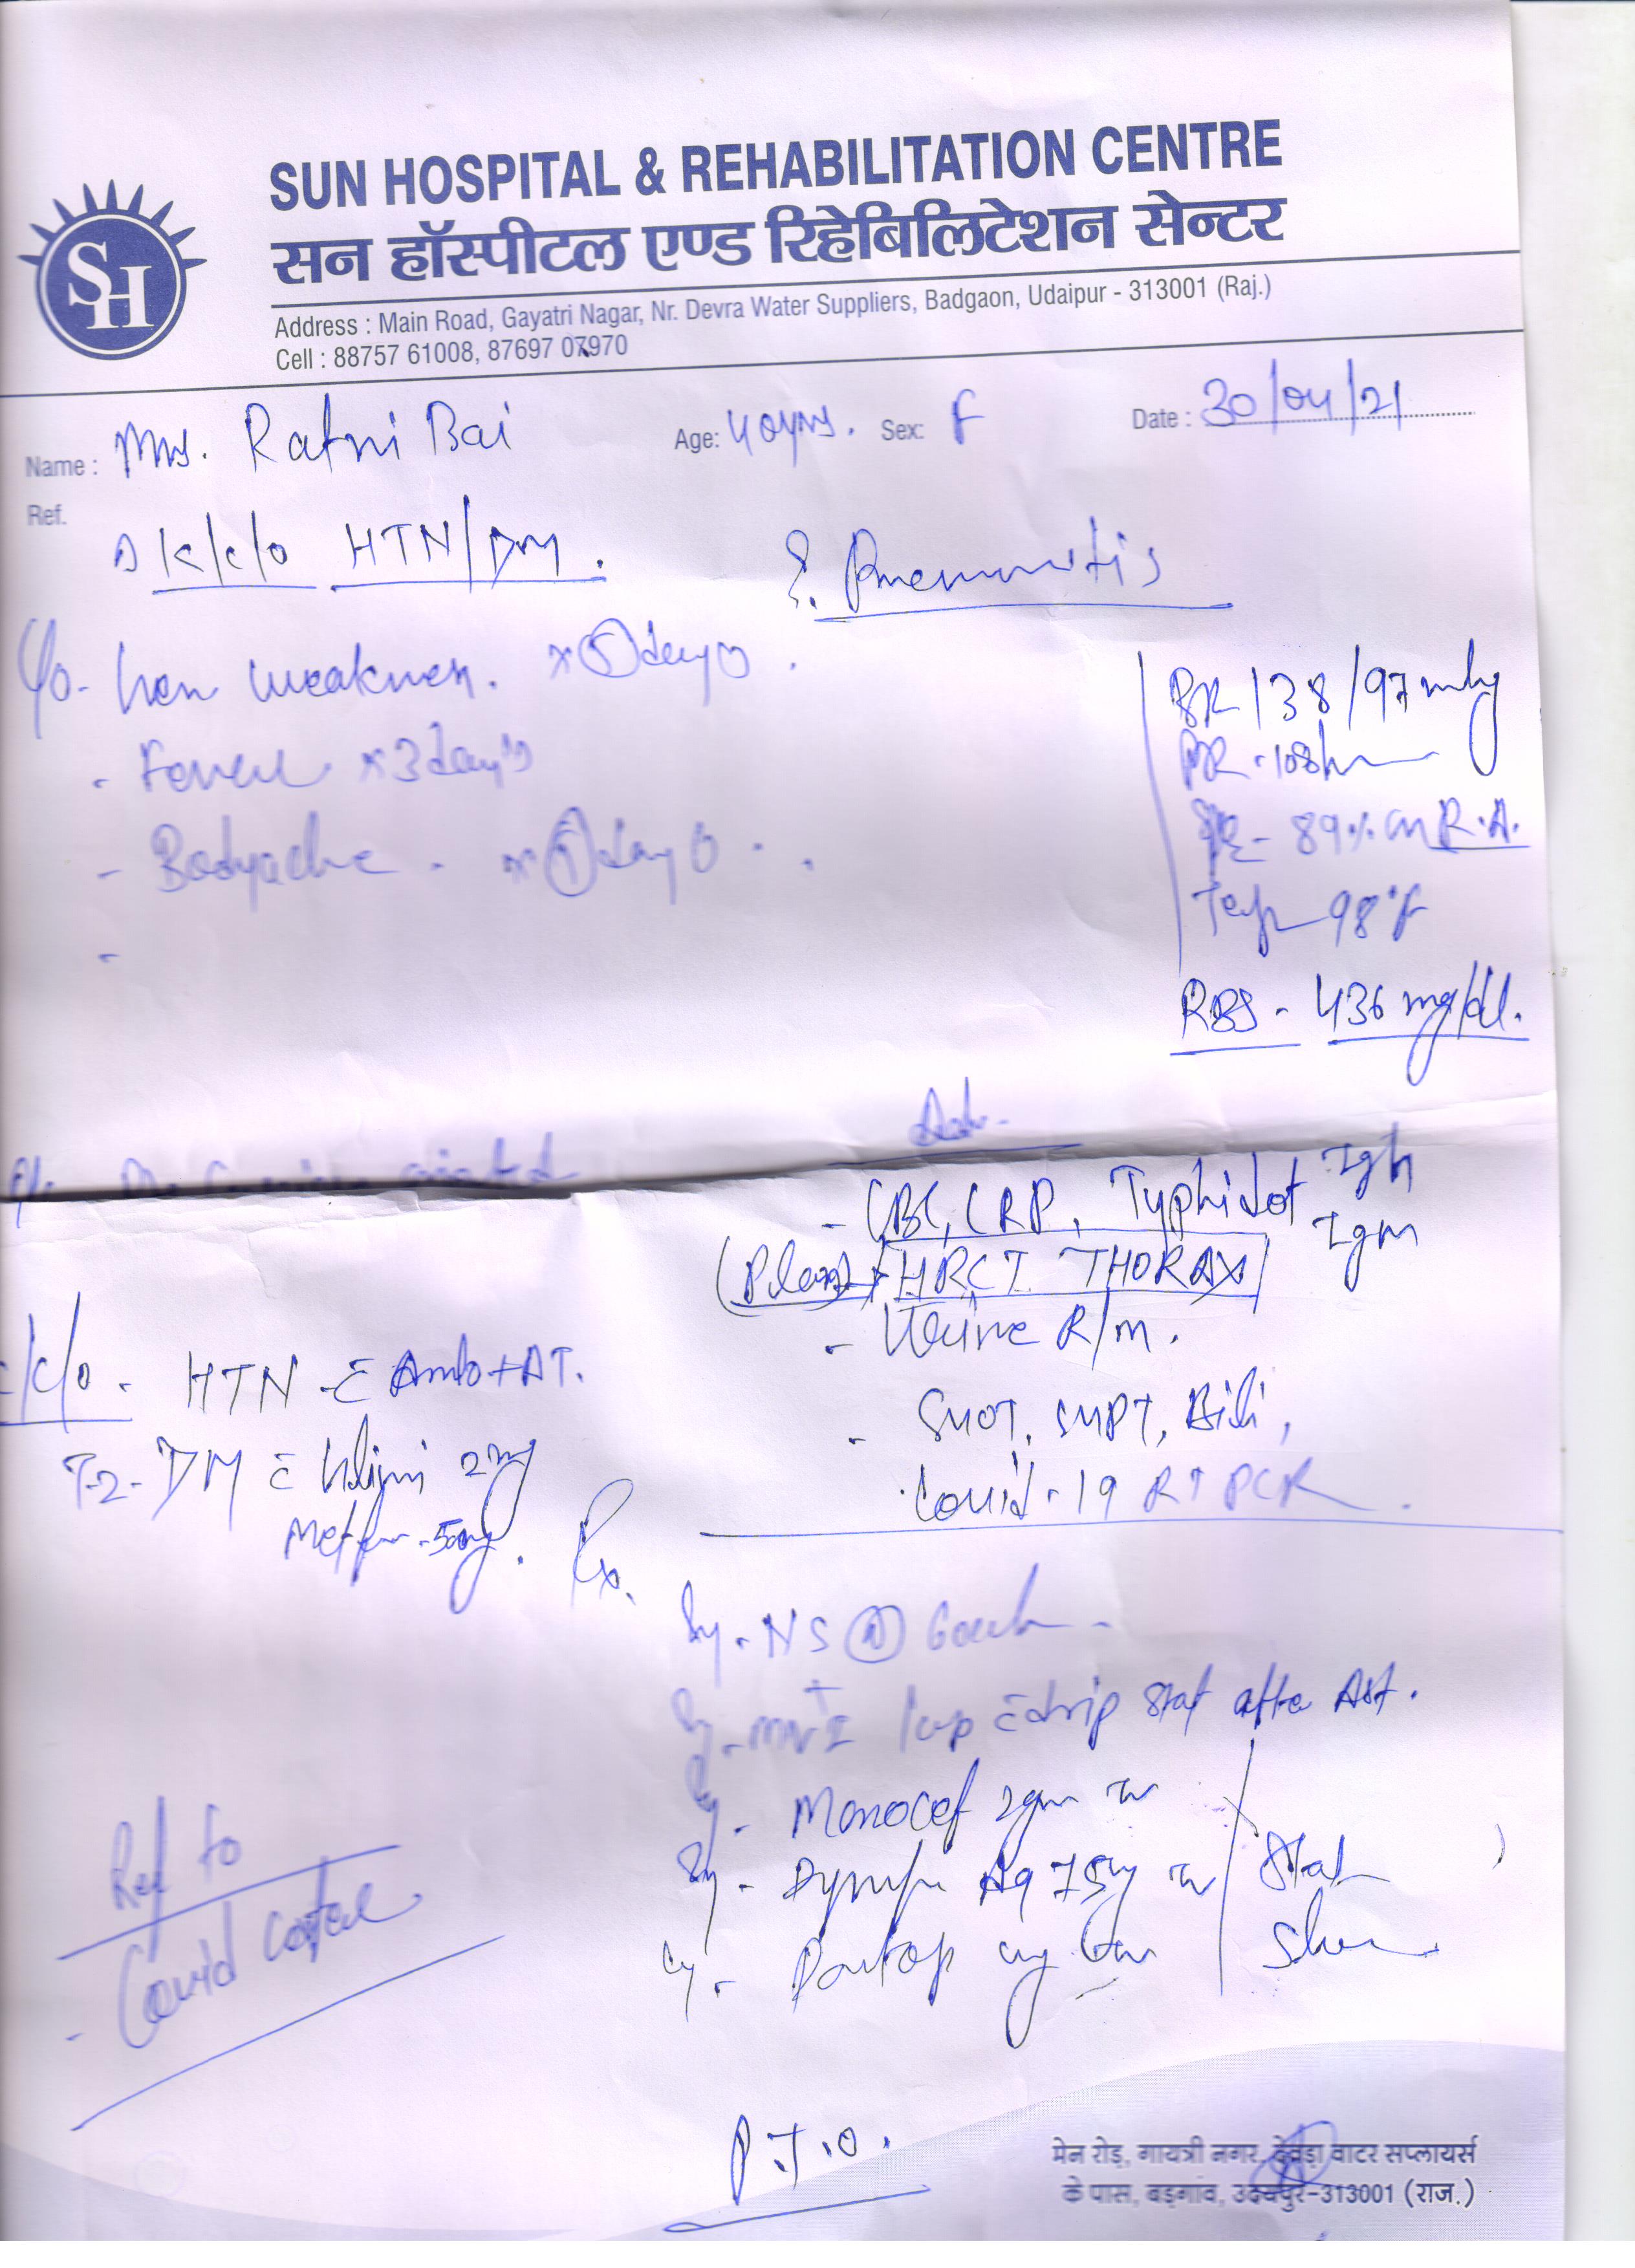 SUN HOSPITAL & REHABILITATION CENTRE
सन हॉस्पीटल एण्ड रिहेबिलिटेशन सेन्टर
SH
Address : Main Road, Gayatri Nagar, Nr. Devra Water Suppliers, Badgaon, Udaipur - 313001 (Raj.)
Cell : 88757 61008, 87697 07970
Name : Mrs. Ratni Bai Age: 40yrs. Sex: F Date : 30/04/21
Ref.
K/c/o HTN/DM.
Pneumonitis
C/o- weakness. days
- Fever x3days
- Bodyache. days
-
BP 138/97
PR - 108
89% on R.A.
Temp 98°F
RBS - 436 mg/dl.
Adv.
- CBC, CRP, Typhidot IgG
IgM
HRCT THORAX
- Urine R/m.
- SGOT, SGPT, Bili,
Covid-19 RT PCR
k/c/o - HTN - c̄ Amlo+AT.
T-2 - DM c̄ 2mg
Metfor - 500mg.
Rx.
NS
MVI 1amp c̄ drip stat after Ast.
Monocef 2gm iv
Dynapar Aq 75mg iv
Pantop
Stat
Ref to
Covid
P.T.O.
मेन रोड़, गायत्री नगर, देवड़ा वाटर सप्लायर्स
के पास, बड़गांव, उदयपुर-313001 (राज.)